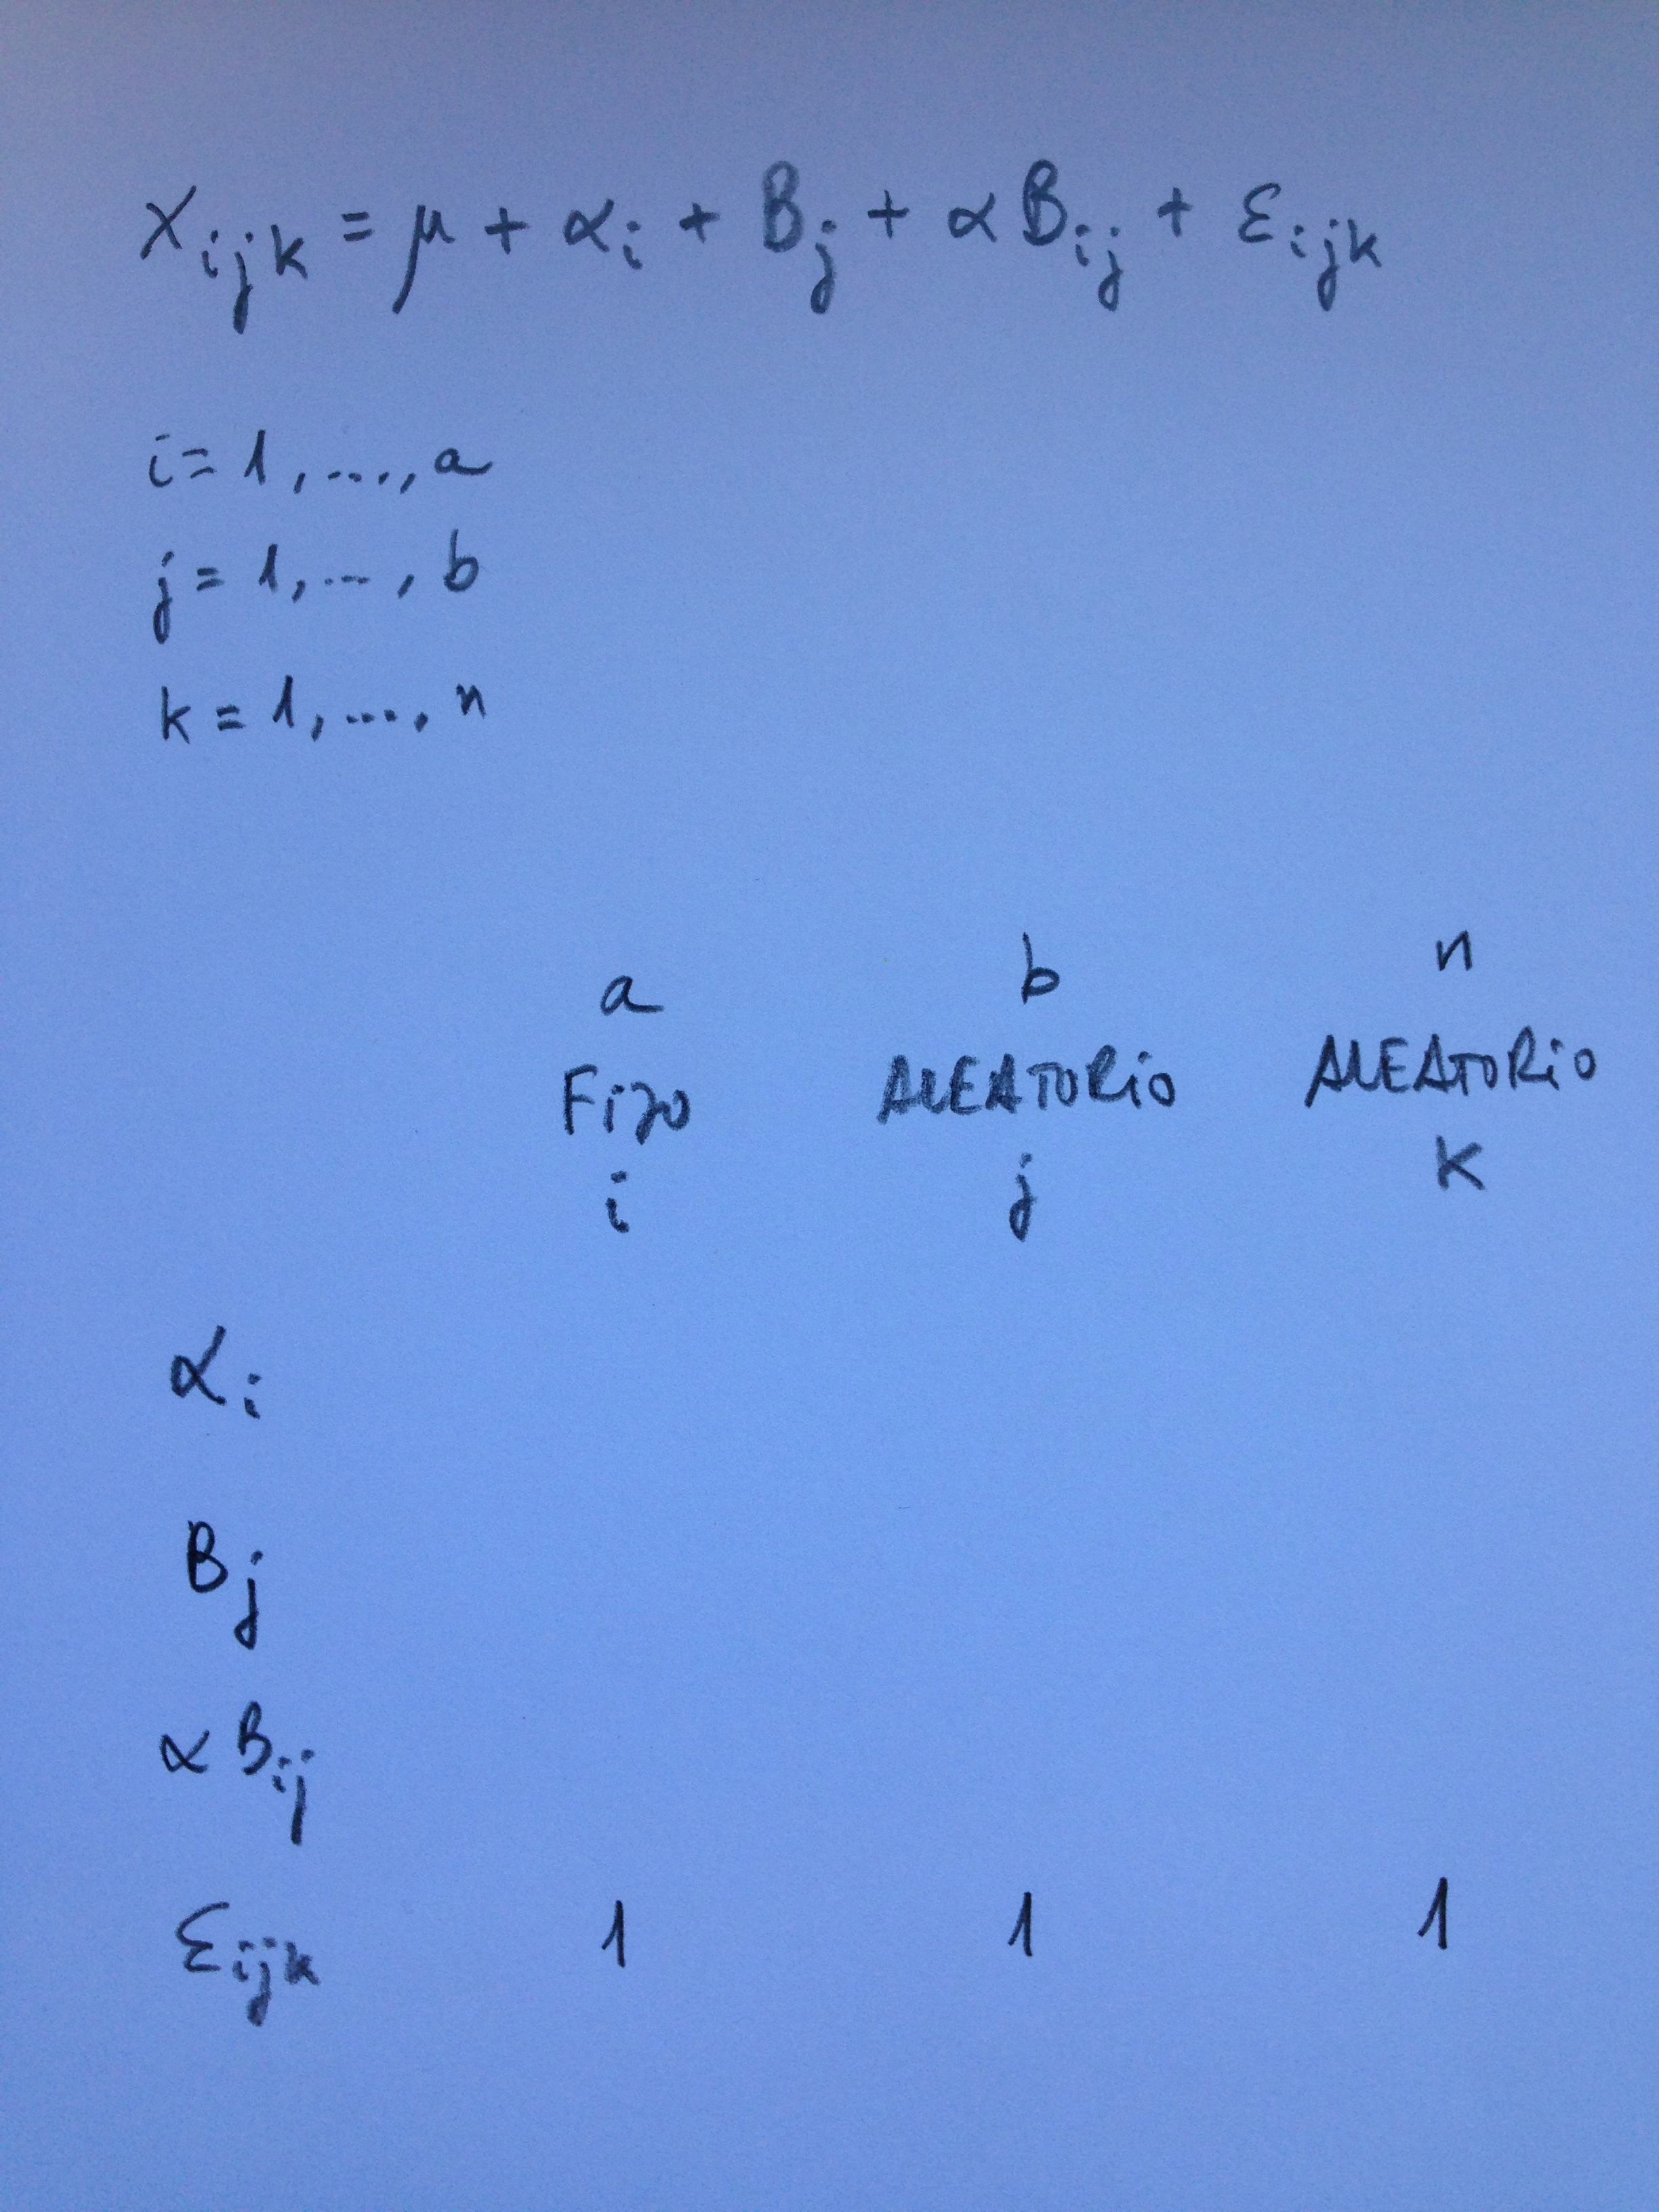 Xijk = μ + αi + Bj + αBij + εijk
i = 1, ..., a
j = 1, ..., b
k = 1, ..., n
a b n
Fijo ALEATORIO ALEATORIO
i j k
αi
Bj
αBij
εijk 1 1 1